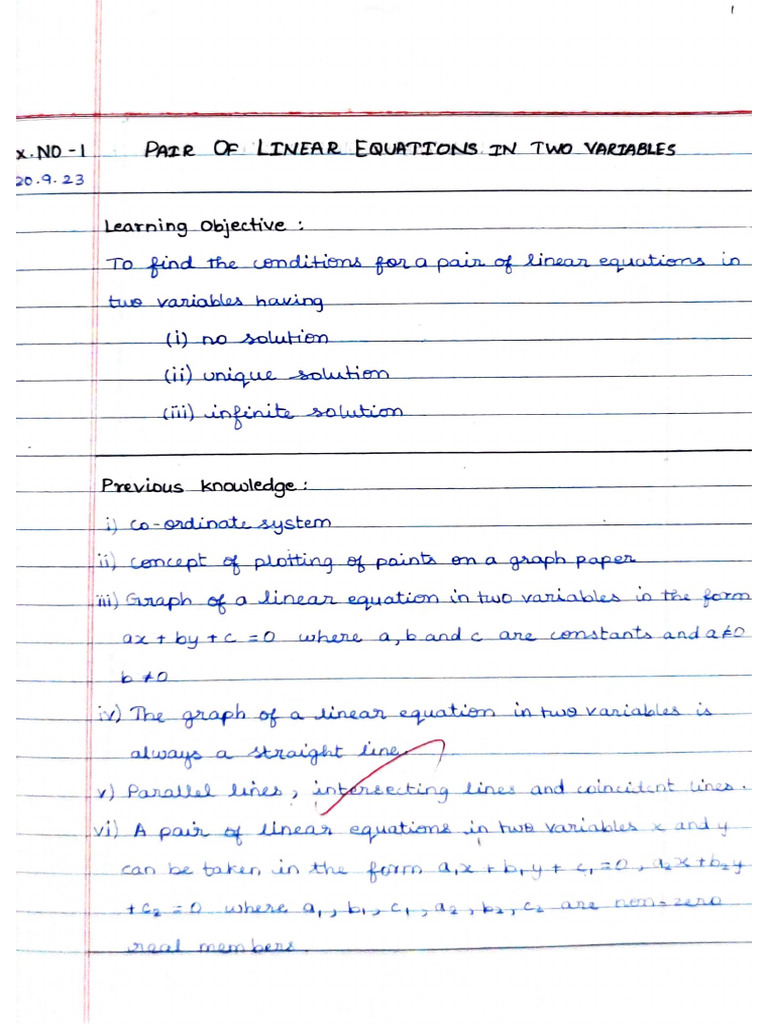 1
x.NO-1 PAIR OF LINEAR EQUATIONS IN TWO VARIABLES
20.9.23
Learning Objective :
To find the conditions for a pair of linear equations in
two variables having
(i) no solution
(ii) unique solution
(iii) infinite solution
Previous Knowledge :
i) co-ordinate system
ii) concept of plotting of points on a graph paper
iii) Graph of a linear equation in two variables in the form
ax + by + c = 0 where a, b and c are constants and a≠0
b ≠0
iv) The graph of a linear equation in two variables is
always a straight line.
v) Parallel lines, intersecting lines and coincident lines.
vi) A pair of linear equations in two variables x and y
can be taken in the form a₁x + b₁y + c₁ = 0, a₂x + b₂y
+ c₂ = 0 where a₁, b₁, c₁, a₂, b₂, c₂ are non-zero
real members.